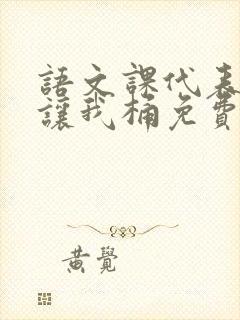 語文課代表
讓我桶免費
黃覺